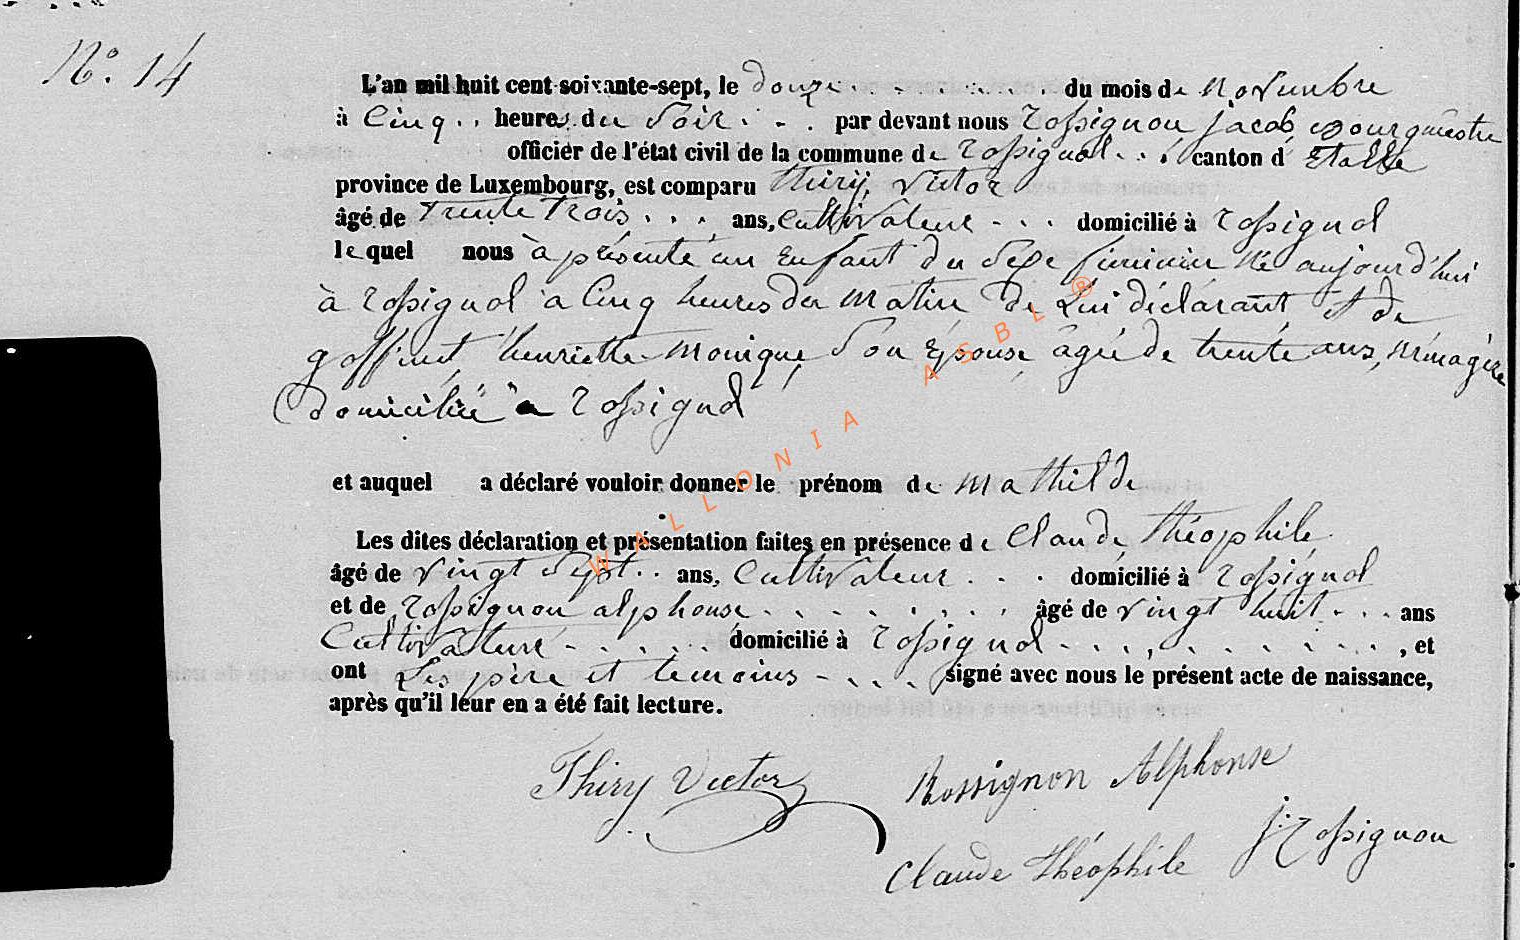 N° 14
L'an mil huit cent soixante-sept, le douze du mois de novembre
à Cinq heures du Soir par devant nous Rossignon Jacob, Bourgmestre
officier de l'état civil de la commune de Rossignol canton d'Etalle
province de Luxembourg, est comparu Thiry, Victor
âgé de trente trois ans, Cultivateur domicilié à Rossignol
lequel nous à présenté un Enfant du Sexe féminin Né aujourd'hui
à Rossignol à Cinq heures du matin de Lui déclarant et de
goffinet henriette monique, Son Epouse, âgée de trente ans, ménagère
domiciliée à Rossignol
et auquel a déclaré vouloir donner le prénom de Mathilde
Les dites déclaration et présentation faites en présence de Claude Théophile
âgé de vingt Sept ans, Cultivateur domicilié à Rossignol
et de Rossignon alphonse âgé de vingt huit ans
Cultivateur domicilié à Rossignol, et
ont Les père et temoins signé avec nous le présent acte de naissance,
après qu'il leur en a été fait lecture.
Thiry Victor Rossignon Alphonse
J. Rossignon
Claude Théophile
WALLONIA ASBL ®